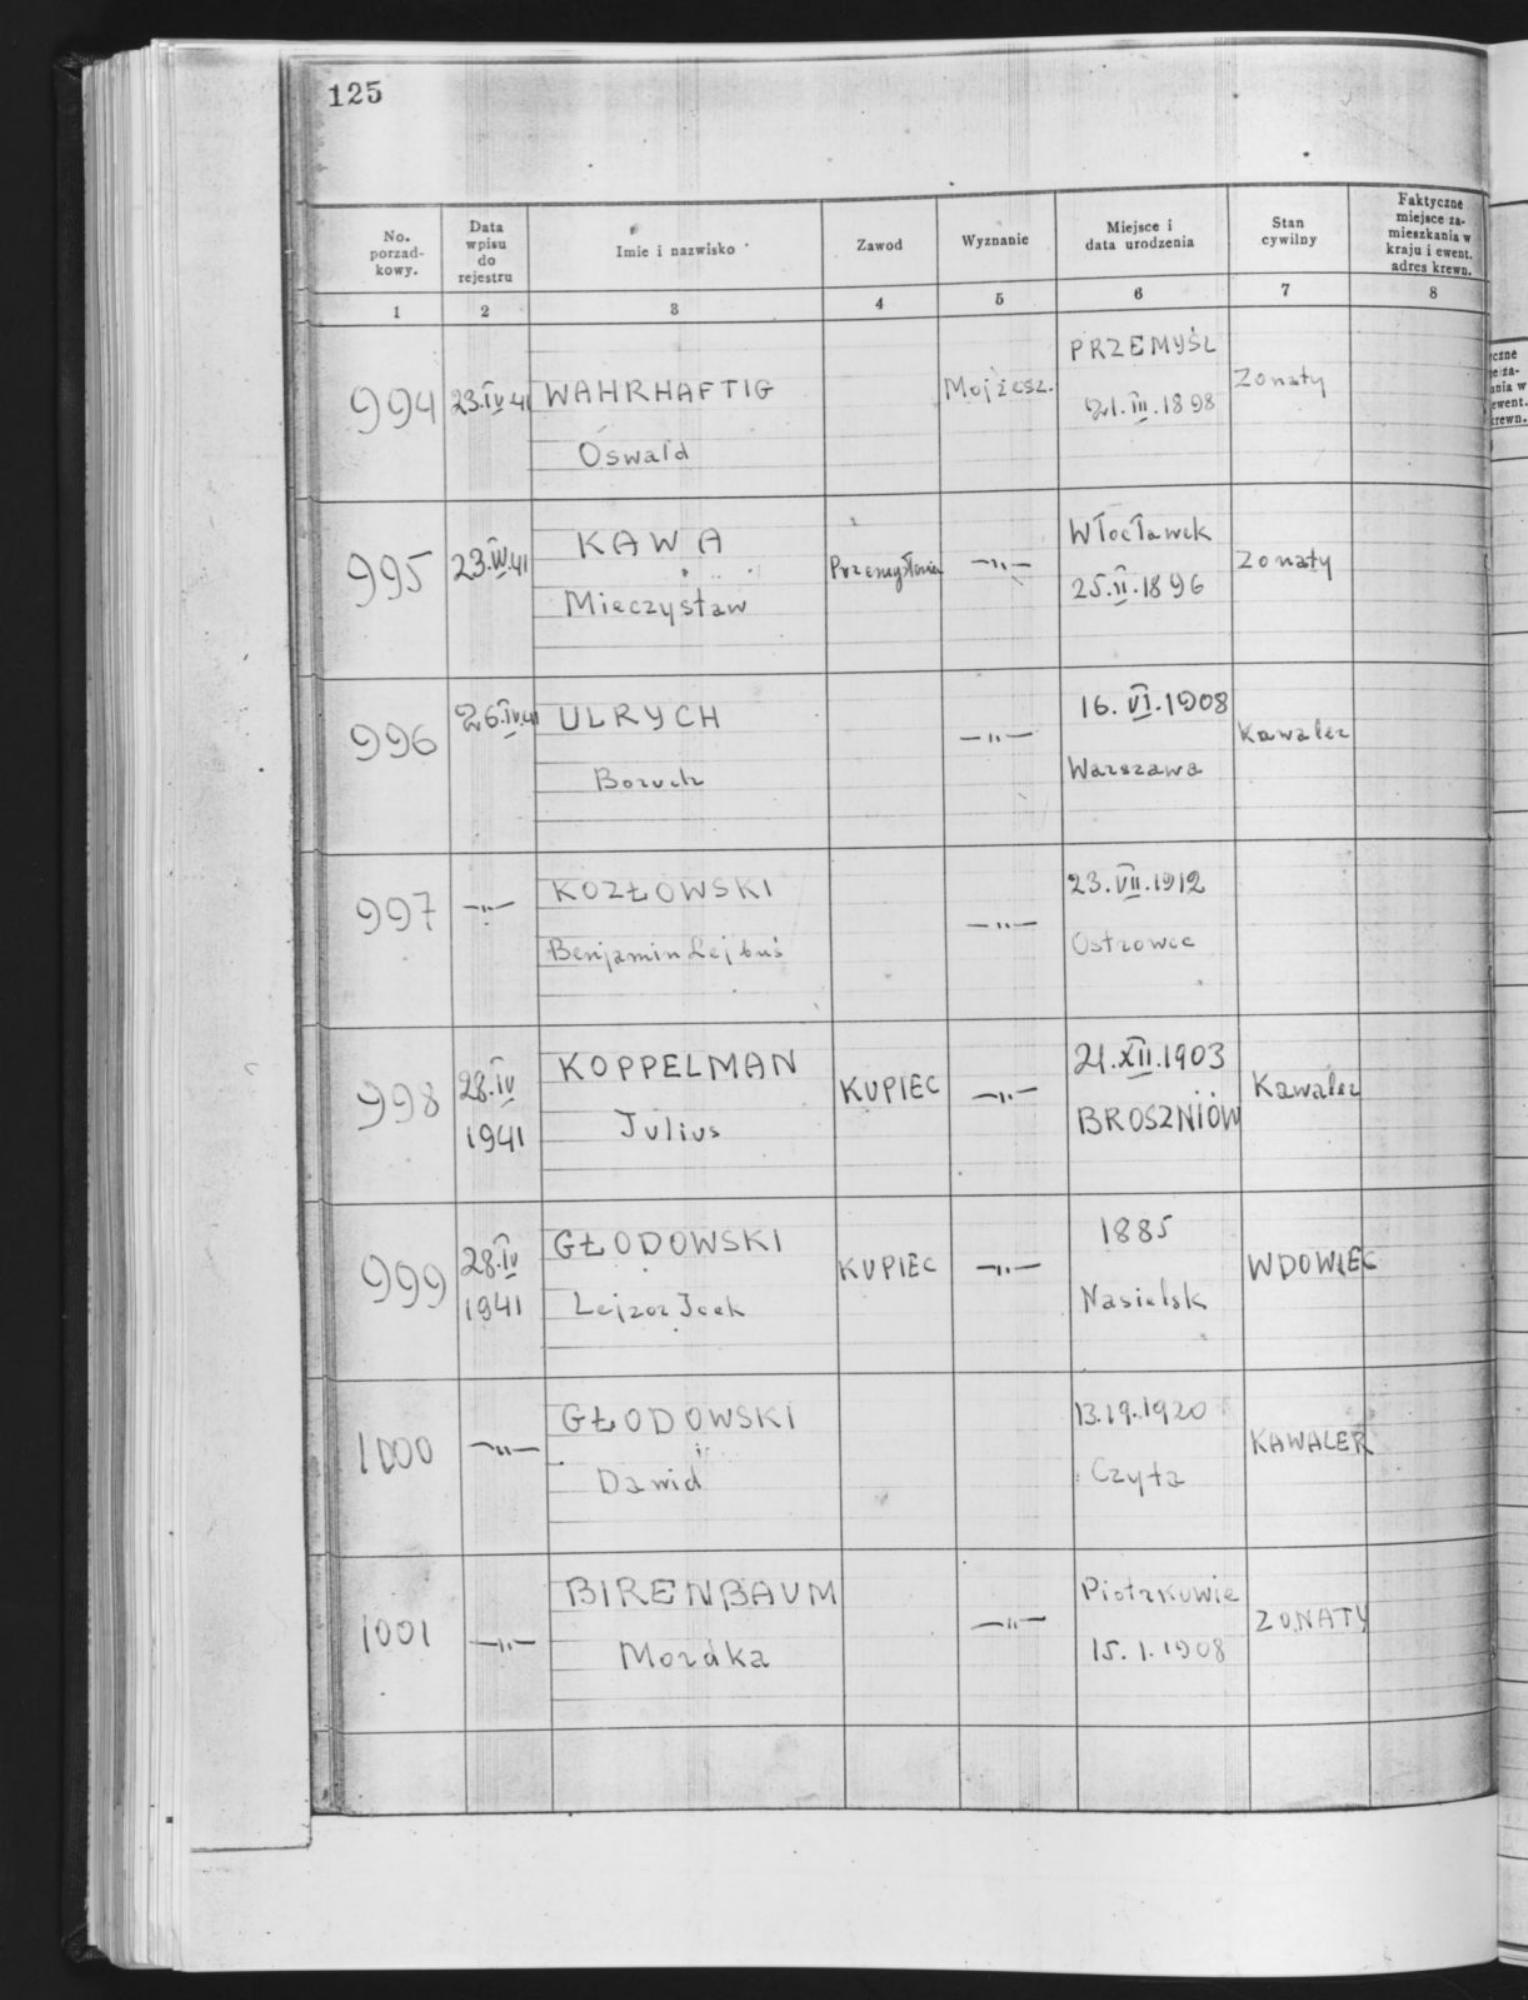 125
No. porzad-kowy.
Data wpisu do rejestru
Imie i nazwisko
Zawod
Wyznanie
Miejsce i data urodzenia
Stan cywilny
Faktyczne miejsce za-mieszkania w kraju i ewent. adres krewn.
1 2 3 4 5 6 7 8
994 23.IV 41 WAHRHAFTIG Mojżesz. PRZEMYŚL Zonaty
Oswald 21.III.1898
995 23.IV.41 KAWA —"— Włocławek Zonaty
Mieczysław 25.II.1896
996 26.IV.41 ULRYCH —"— 16.VI.1908 Kawaler
Boruch Warszawa
997 —"— KOZŁOWSKI —"— 23.VII.1912
Benjamin Lejbuś Ostrowce
998 28.IV 1941 KOPPELMAN KUPIEC —"— 21.XII.1903 Kawaler
Julius BROSZNIÓW
999 28.IV 1941 GŁODOWSKI KUPIEC —"— 1885 WDOWIEC
Lejzor Icek Nasielsk
1000 —"— GŁODOWSKI 13.19.1920 KAWALER
Dawid Czyta
1001 —"— BIRENBAUM —"— Piotrkowie ZONATY
Mordka 15.1.1908
czne
e za-
ania w
ewent.
krewn.